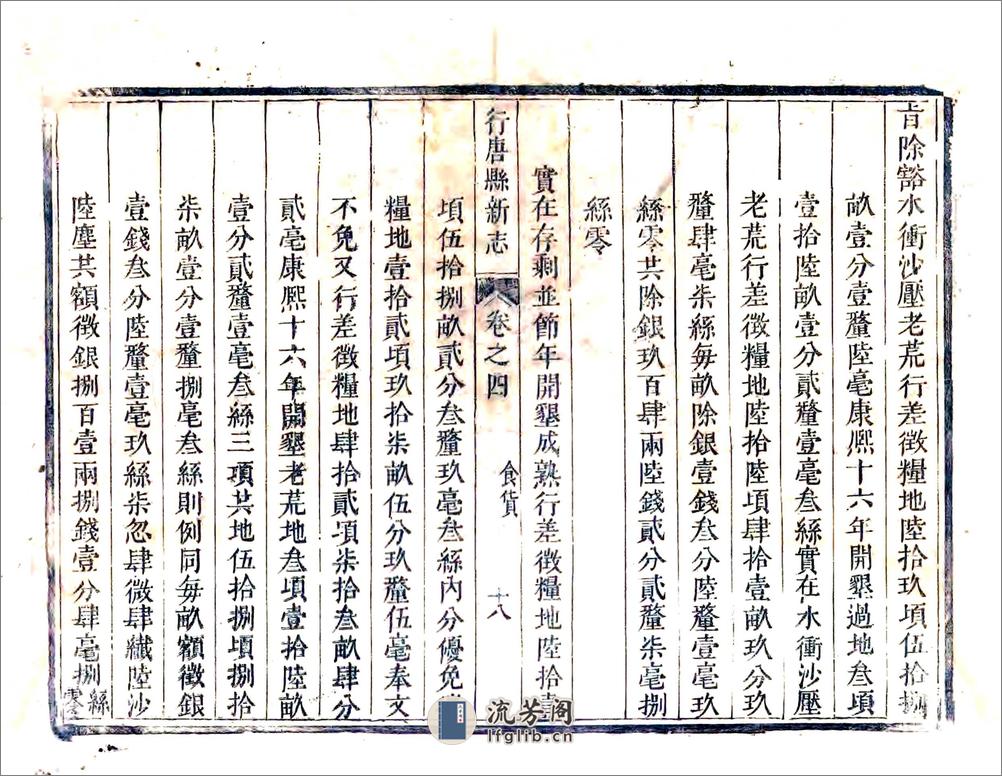 旨除豁水衝沙壓老荒行差徵糧地陸拾玖項伍拾捌
畝壹分壹釐陸毫康熈十六年開墾過地叁項
壹拾陸畝壹分貳釐壹毫叁絲實在水衝沙壓
老荒行差徵糧地陸拾陸項肆拾壹畝玖分玖
釐肆毫柒絲毎畝除銀壹錢叁分陸釐壹毫玖
絲零共除銀玖百肆兩陸錢貳分貳釐柒毫捌
絲零
實在存剩並節年開墾成熟行差徵糧地陸拾壹
行唐縣新志
卷之四
食貨
十八
項伍拾捌畝貳分叁釐玖毫叁絲內分優免
糧地壹拾貳項玖拾柒畝伍分玖釐伍毫奉文
不免又行差徵糧地肆拾貳項柒拾叁畝肆分
貳毫康熈十六年開墾老荒地叁項壹拾陸畝
壹分貳釐壹毫叁絲三項共地伍拾捌項捌拾
柒畝壹分壹釐捌毫叁絲則例同毎畝額徵銀
壹錢叁分陸釐壹毫玖絲柒忽肆微肆纖陸沙
陸塵共額徵銀捌百壹兩捌錢壹分肆毫捌絲零
流芳阁
lfglib.cn